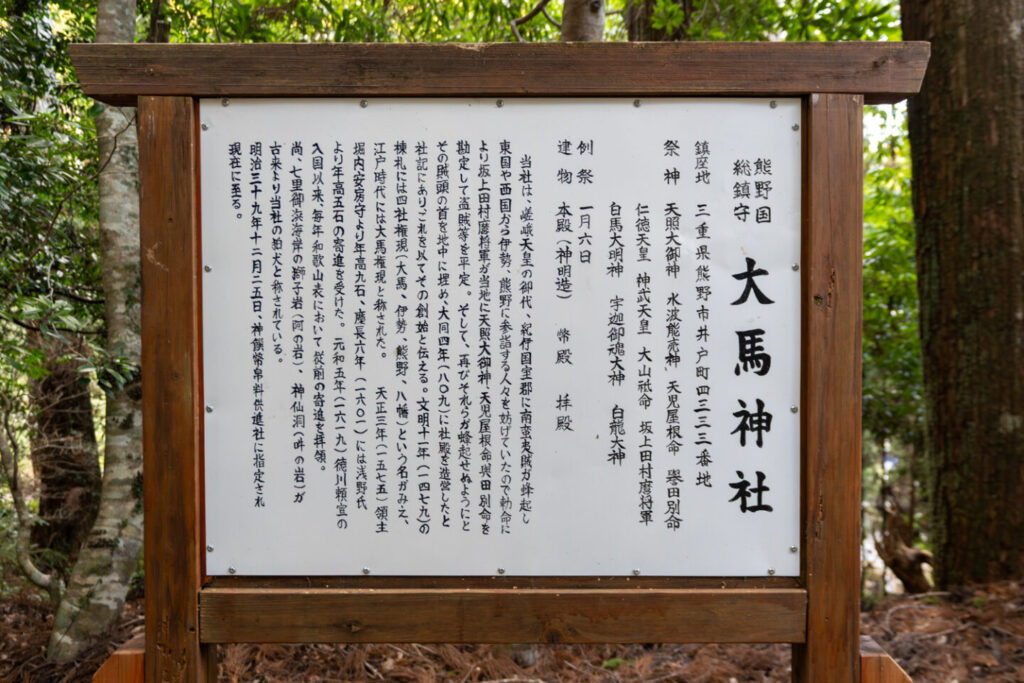 熊野国
総鎮守
大馬神社
鎮座地　三重県熊野市井戸町四三三三番地
祭神　天照大御神　水波能売神　天児屋根命　誉田別命
仁徳天皇　神武天皇　大山祇命　坂上田村麿将軍
白馬大明神　宇迦御魂大神　白龍大神
例祭　一月六日
建物　本殿（神明造）　幣殿　拝殿
当社は、嵯峨天皇の御代、紀伊国室郡に南蛮夷賊が蜂起し
東国や西国から伊勢、熊野に参詣する人々を妨げていたので勅命に
より坂上田村麿将軍が当地に天照大御神、天児屋根命、誉田別命を
勘定して盗賊等を平定。そして、再びそれらが蜂起せぬようにと
その賊頭の首を地中に埋め、大同四年（八〇九）に社殿を造営したと
社記にあり、これを以てその創始と伝える。文明十一年（一四七九）の
棟札には四社権現（大馬、伊勢、熊野、八幡）という名がみえ、
江戸時代には大馬権現と称された。　天正三年（一五七五）領主
堀内安房守より年高九石、慶長六年（一六〇一）には浅野氏
より年高五石の寄進を受けた。元和五年（一六一九）徳川頼宣の
入国以来、毎年和歌山表において従前の寄進を拝領。
尚、七里御浜海岸の獅子岩（阿の岩）、神仙洞（吽の岩）が
古来より当社の狛犬と称されている。
明治三十九年十二月二五日、神饌幣帛料供進社に指定され
現在に至る。